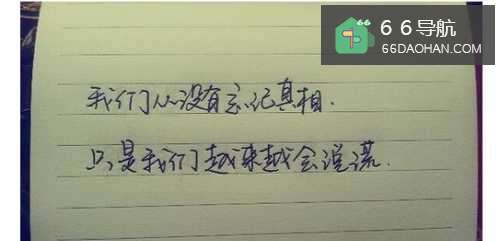 66导航
66DAOHAN.COM
我们从没有忘记真相.
只是我们越来越会说谎.